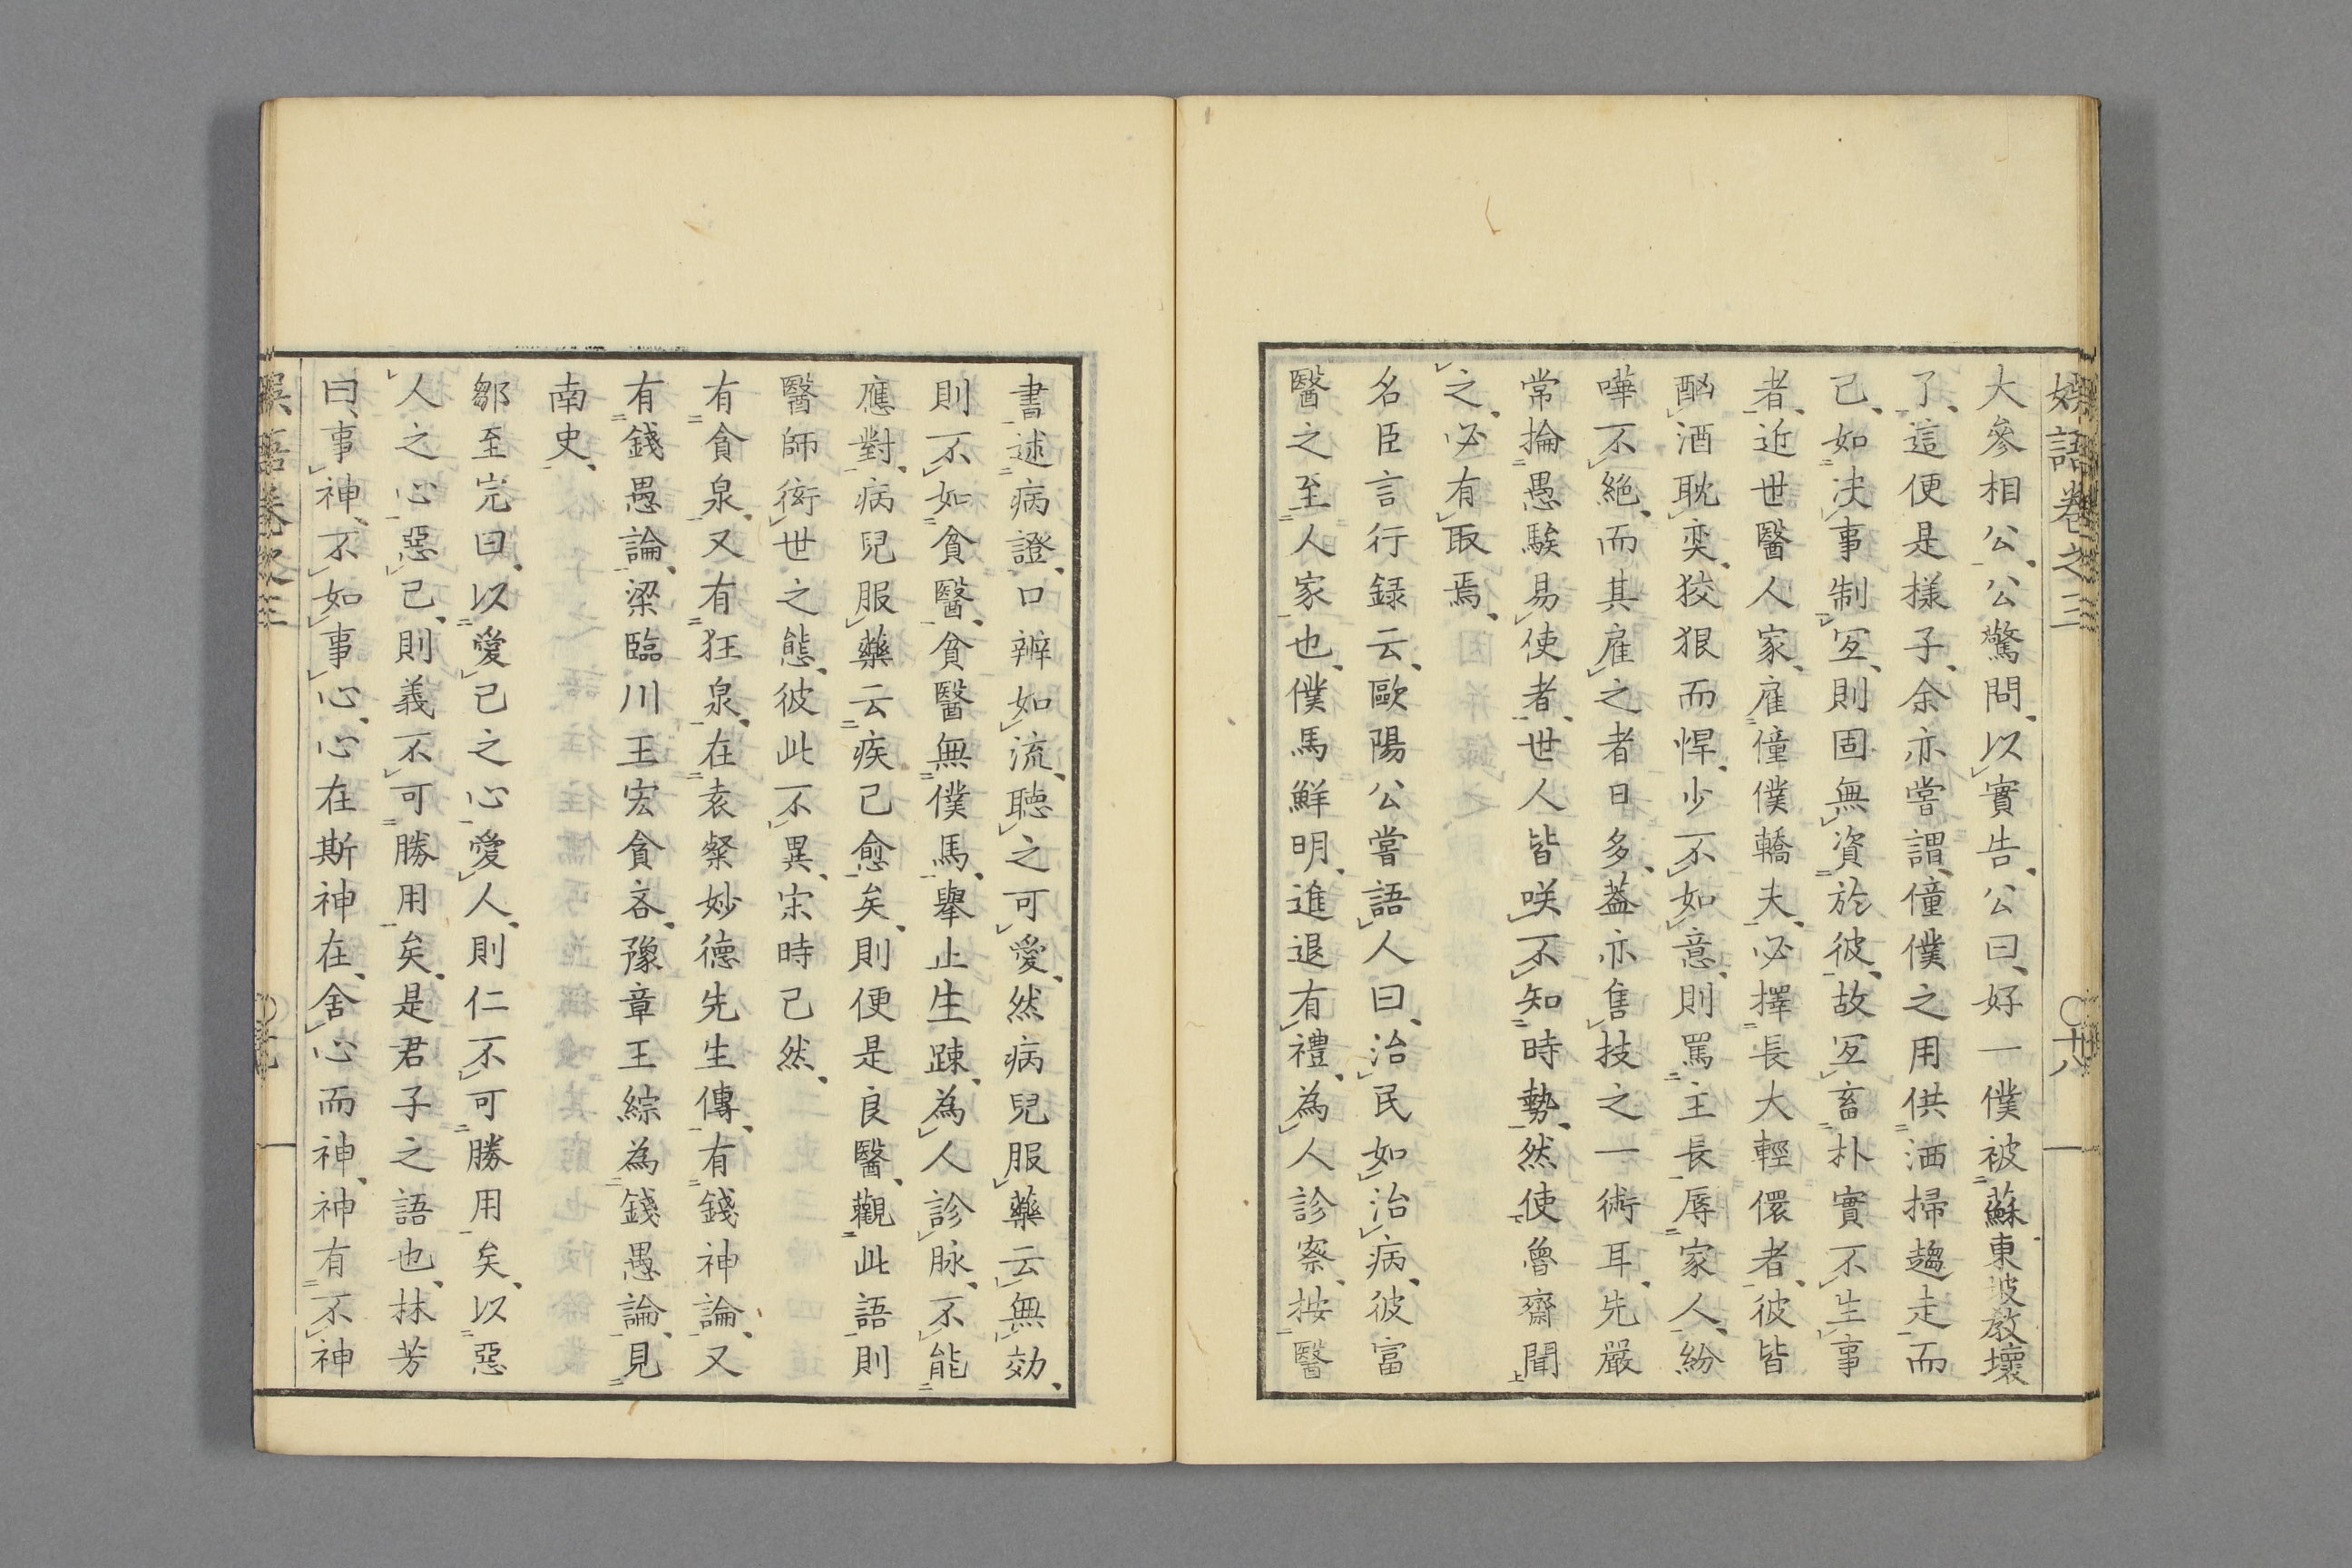 娯語卷之三　〇十八
大參相公公驚問以實告公曰好一僕被蘇東坡教壞
了這便是様子余亦嘗謂僮僕之用供洒掃趨走而
己如决事制冝則固無資於彼故冝畜朴實不生事
者近世醫人家雇僮僕轎夫必擇長大輕儇者彼皆
酗酒耽奕狡狠而悍少不如意則罵主長辱家人紛
嘩不絶而其雇之者日多葢亦售技之一術耳先嚴
常掄愚騃易使者世人皆咲不知時勢然使魯齋聞
之必有取焉
名臣言行録云歐陽公嘗語人曰治民如治病彼富
醫之至人家也僕馬鮮明進退有禮為人診察按醫
書述病證口辨如流聴之可愛然病兒服藥云無効
則不如貧醫貧醫無僕馬舉止生踈為人診脉不能
應對病兒服藥云疾己愈矣則便是良醫觀此語則
醫師衒世之態彼此不異宋時己然
有貪泉又有狂泉在袁粲妙德先生傳有錢神論又
有錢愚論梁臨川王宏貪吝豫章王綜為錢愚論見
南史
鄒至完曰以愛己之心愛人則仁不可勝用矣以惡
人之心惡己則義不可勝用矣是君子之語也林芳
曰事神不如事心心在斯神在舍心而神神有不神